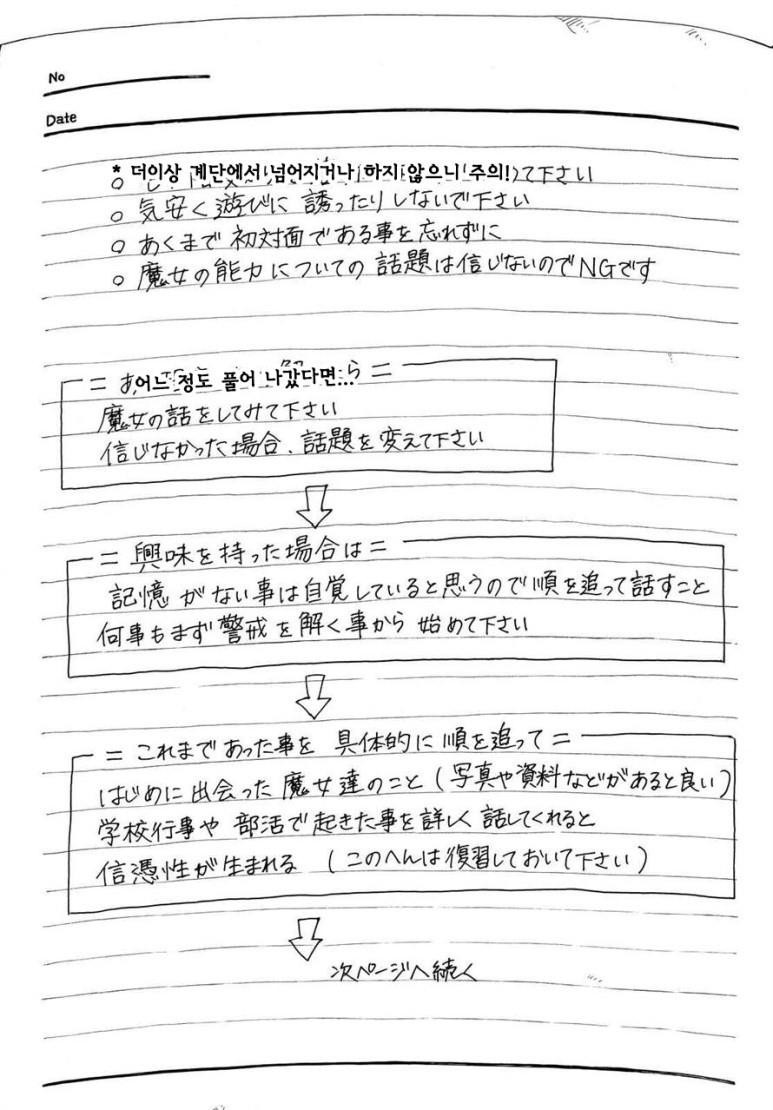 No
Date
* 더이상 계단에서 넘어지거나 하지 않으니 주의!
て下さい
○ 気安く遊びに誘ったりしないで下さい
○ あくまで初対面である事を忘れずに
○ 魔女の能力についての話題は信じないのでNGです
= 어느 정도 풀어 나갔다면... ら =
魔女の話をしてみて下さい
信じなかった場合、話題を変えて下さい
= 興味を持った場合は =
記憶がない事は自覚していると思うので順を追って話すこと
何事もまず警戒を解く事から始めて下さい
= これまであった事を具体的に順を追って =
はじめに出会った魔女達のこと(写真や資料などがあると良い)
学校行事や部活で起きた事を詳しく話してくれると
信憑性が生まれる (このへんは復習しておいて下さい)
次ページへ続く